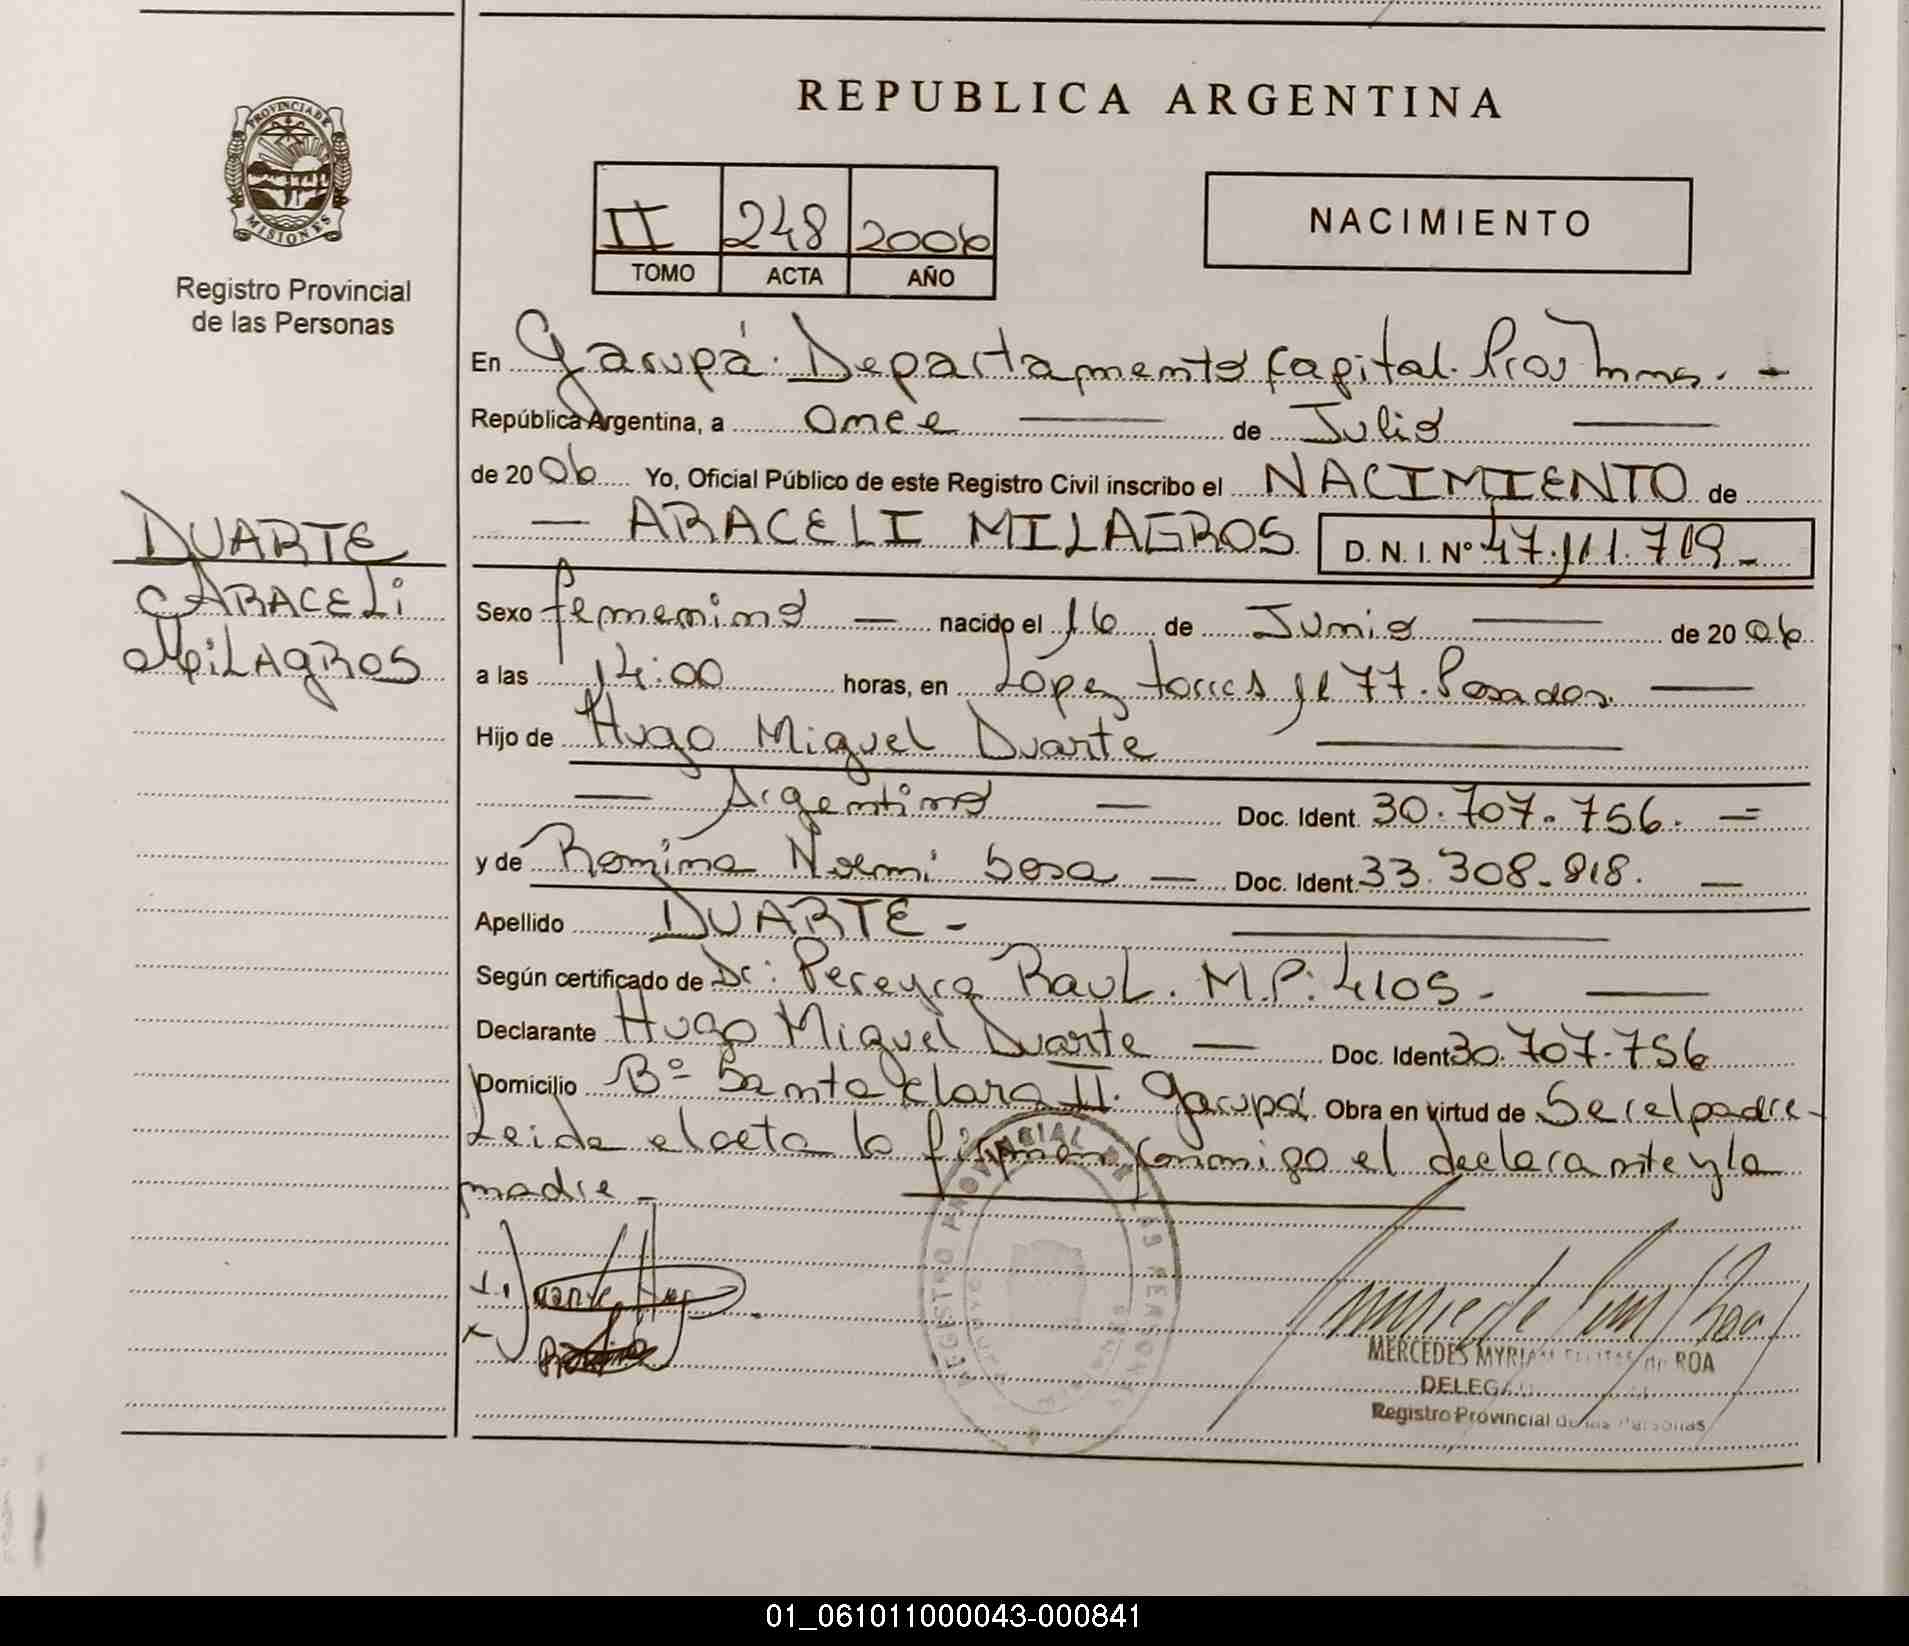 REPUBLICA ARGENTINA
PROVINCIA DE
MISIONES
Registro Provincial
de las Personas
II 248 2006
TOMO ACTA AÑO
NACIMIENTO
En Garupá. Departamento Capital. Prov Mnes. -
República Argentina, a once de Julio
de 2006 Yo, Oficial Público de este Registro Civil inscribo el NACIMIENTO de
ARACELI MILAGROS D. N. I. Nº 47.111.719 -
DUARTE
ARACELi
MiLAgROS
Sexo femenino nacido el 16 de Junio de 2006
a las 14:00 horas, en Lopez torres 77. Posadas.
Hijo de Hugo Miguel Duarte
Argentino Doc. Ident. 30.707.756. =
y de Romina Noemi Sosa Doc. Ident. 33.308.818.
Apellido DUARTE -
Según certificado de Dr: Pereyra Raul. M.P: 4105 -
Declarante Hugo Miguel Duarte Doc. Ident 30.707.756
Domicilio Bº Santa Clara II. Garupá Obra en virtud de Ser el padre-
Leida el acta la firman conmigo el declarante y la
madre -
REGISTRO PROVINCIAL DE LAS PERSONAS
MERCEDES MYRIAM de ROA
Registro Provincial de las Personas
01_061011000043-000841